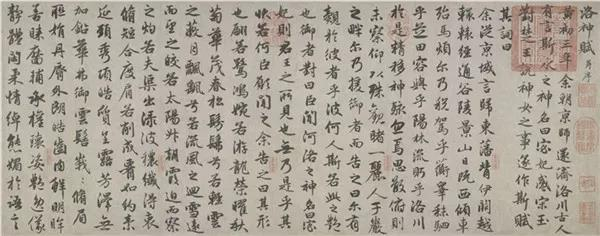 洛神賦 并序
黄初三年余朝京師還濟洛川古人
有言斯水之神名曰宓妃感宋玉
對楚王說神女之事遂作斯賦
其詞曰
余從京城言歸東藩背伊闕越
轘轅經通谷陵景山日既西傾車
殆馬煩尔乃稅駕乎蘅皋秣駟
乎芝田容與乎陽林流眄乎洛川
於是精移神駭忽焉思散俯則
未察仰以殊觀睹一麗人于巖
之畔尔乃援御者而告之曰尔有
覿於彼者乎彼何人斯若此之艷
也御者對曰臣聞河洛之神名曰宓
妃則君王之所見也無乃是乎其
狀若何臣願聞之余告之曰其形
也翩若驚鴻婉若游龍榮曜秋
菊華茂春松髣髴兮若輕雲
之蔽月飄颻兮若流風之迴雪遠
而望之皎若太陽升朝霞迫而察
之灼若夫渠出淥波穠纖得衷
脩短合度肩若削成要如約素
延頸秀項皓質呈露芳澤無
加鉛華弗御雲髻峨峨脩眉
聯娟丹脣外朗皓齒内鮮明眸
善睞靨輔承權瓌姿艷逸儀
靜體閑柔情綽態媚於語言